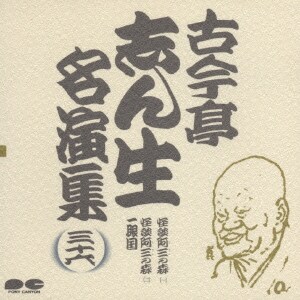 古今亭
志ん生
名演集
三十六
怪談阿三の森(一)
怪談阿三の森(二)
一眼国
PONY CANYON